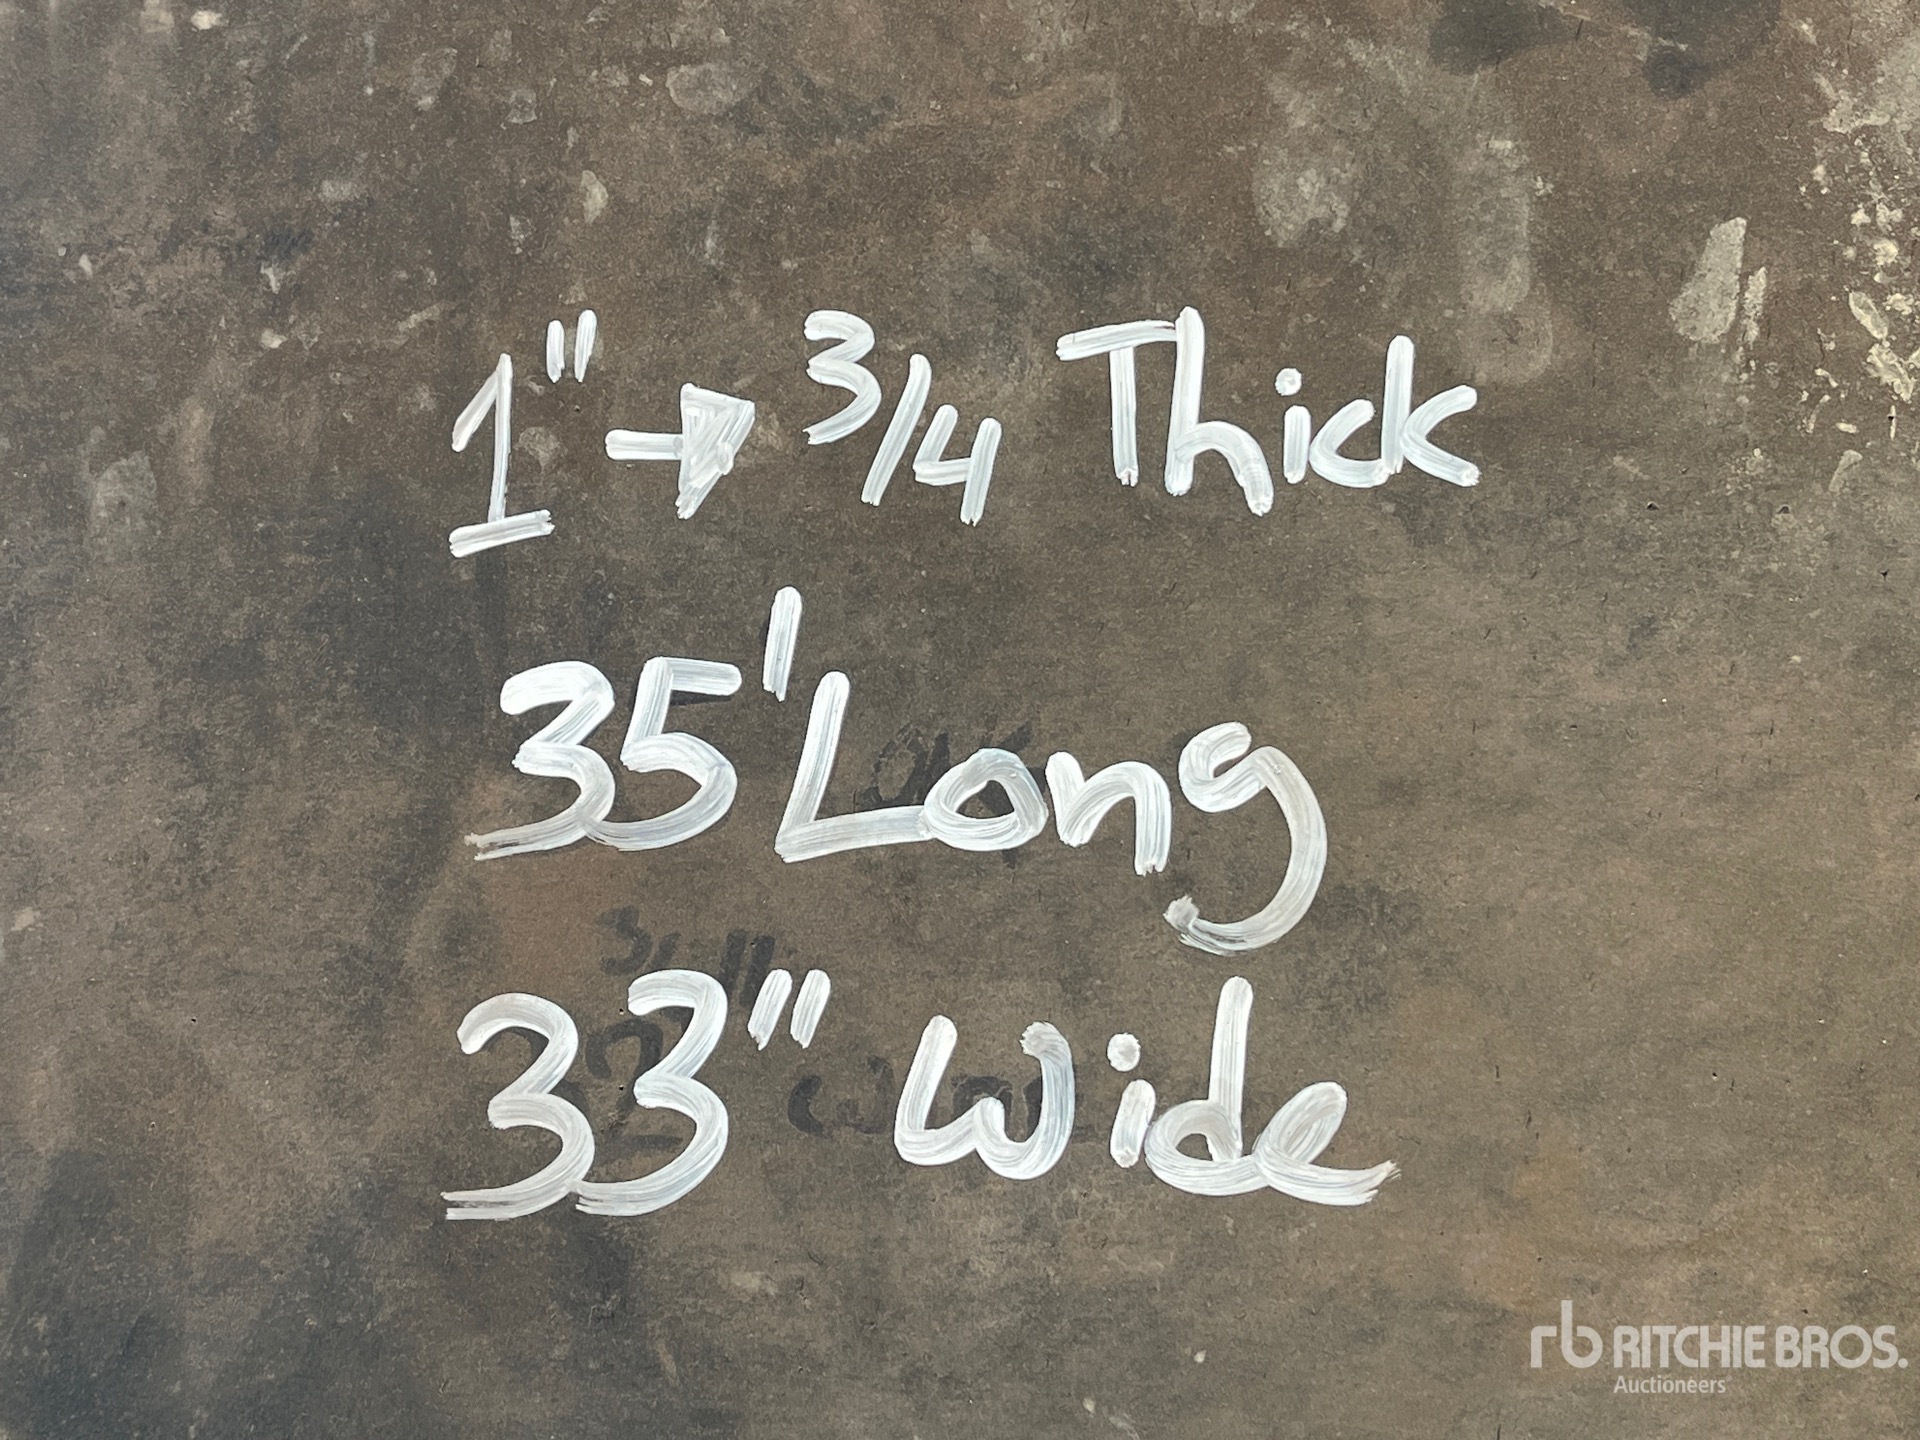 1" → 3/4 Thick
35' Long
33" Wide
rb RITCHIE BROS.
Auctioneers